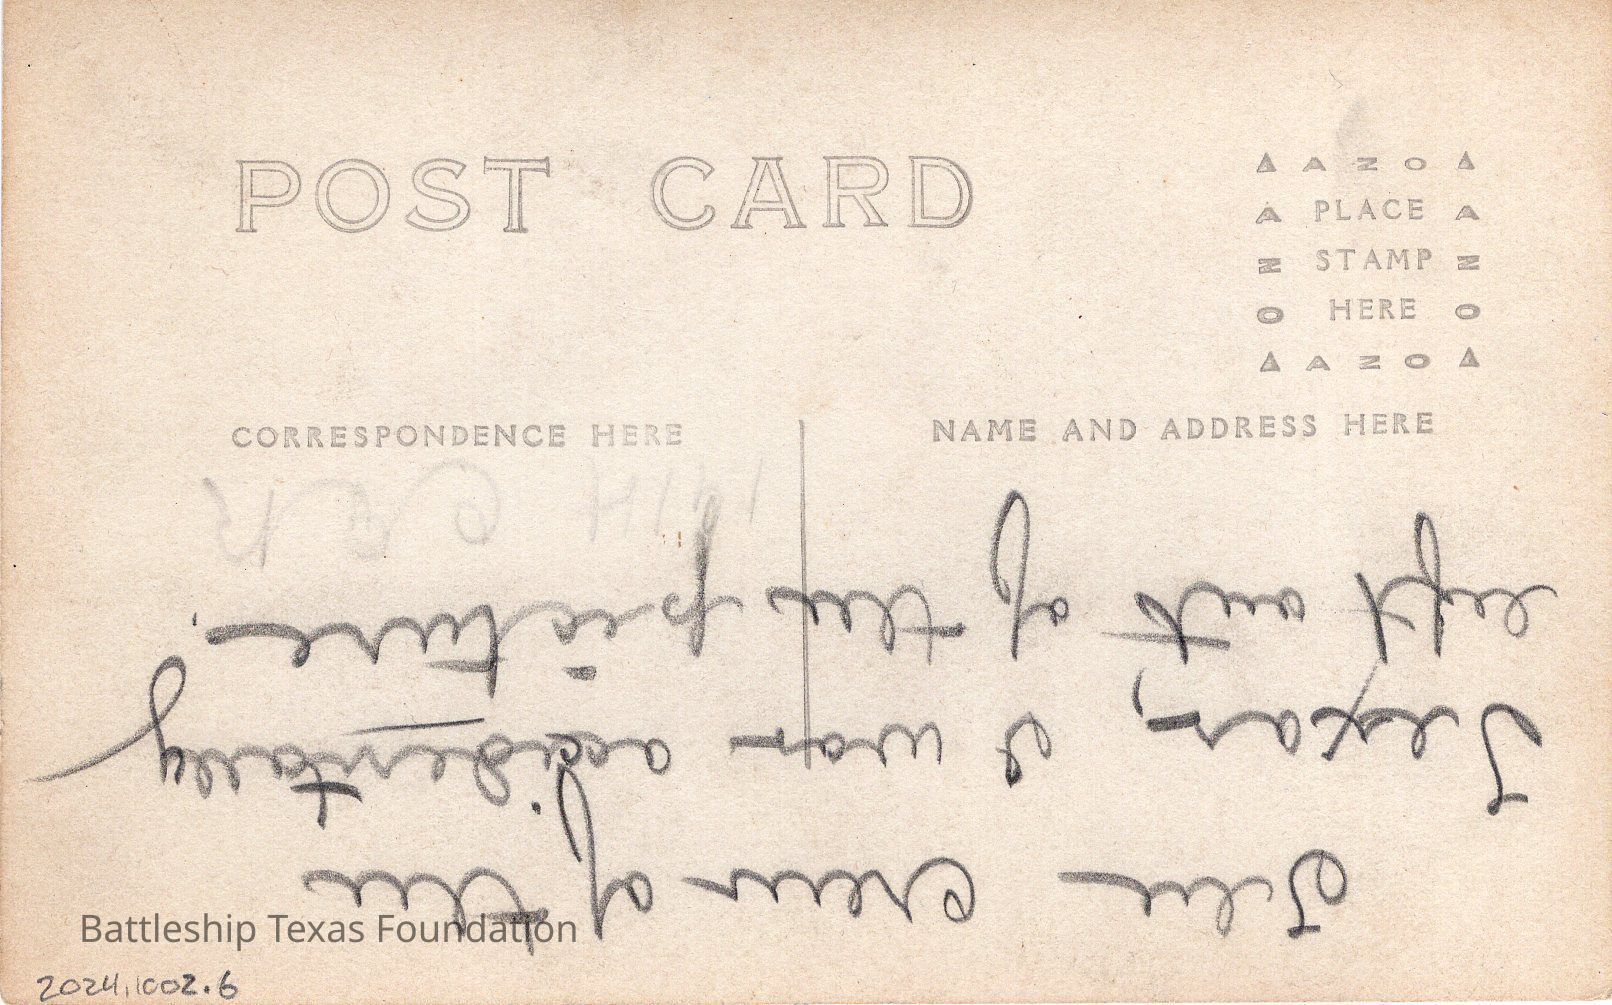 POST CARD
AZOA
PLACE
STAMP
HERE
AZOA
CORRESPONDENCE HERE
NAME AND ADDRESS HERE
The crew of the
Texas, I was accidentally
left out of the picture.
1914
Battleship Texas Foundation
2024.1002.6